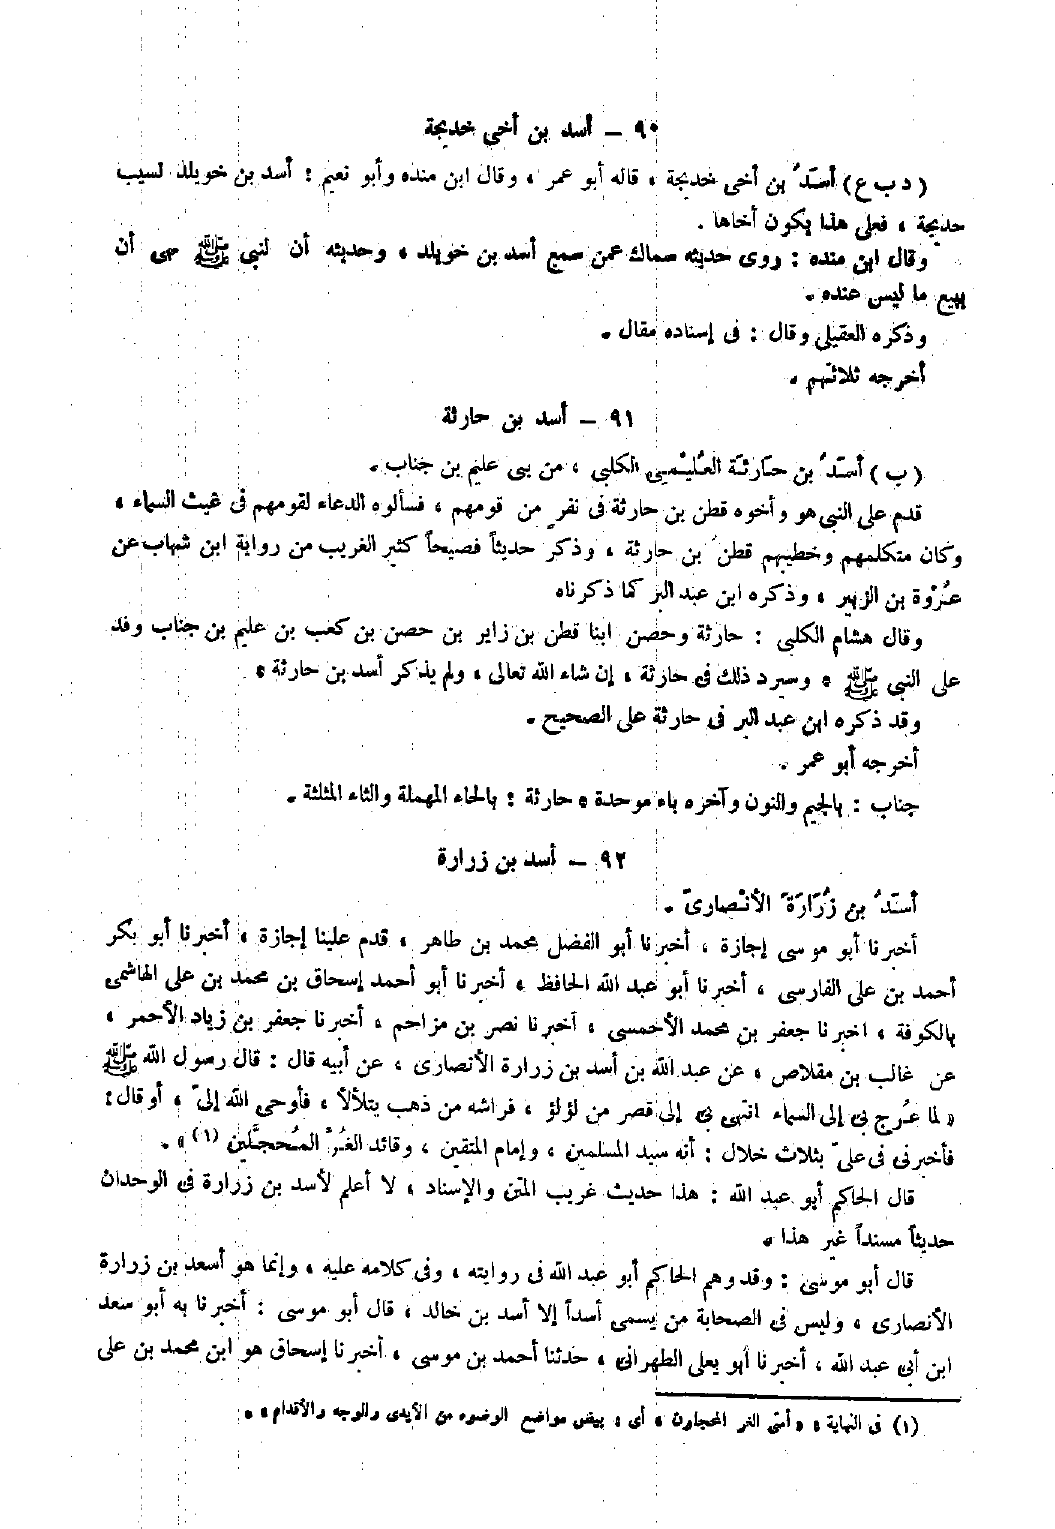 ٩٠ – أسد بن أخى خديجة
( د ب ع ) أسَدُ بن أخى خديجة ، قاله أبو عمر ، وقال ابن منده وأبو نعيم : أسد بن خويلد نسيب
خديجة ، فعلى هذا يكون أخاها .
وقال ابن منده : روى حديثه سماك عمن سمع أسد بن خويلد ، وحديثه أن لنبي ﷺ نهى أن
يبيع ما ليس عنده .
وذكره العقيلي وقال : فى إسناده مقال .
أخرجه ثلاثتهم .
٩١ – أسد بن حارثة
( ب ) أسَدُ بن حَارثَة العُلَيْمِيي الكلبى ، من بنى عليم بن جناب .
قدم على النبى هو وأخوه قطن بن حارثة فى نفرٍ من قومهم ، فسألوه الدعاء لقومهم فى غيث السماء ،
وكان متكلمهم وخطيبهم قطن ُ بن حارثة ، وذكر حديثاً فصيحاً كثير الغريب من رواية ابن شهاب عن
عُرْوة بن الزبير ، وذكره ابن عبد البر كما ذكرناه
وقال هشام الكلبى : حارثة وحصن ابنا قطن بن زاير بن حصن بن كعب بن عليم بن جناب وفد
على النبي ﷺ ، وسيرد ذلك فى حارثة ، إن شاء الله تعالى ، ولم يذكر أسد بن حارثة ،
وقد ذكره ابن عبد البر فى حارثة على الصحيح .
أخرجه أبو عمر .
جناب : بالجيم والنون وآخره باء موحدة ، حارثة : بالحاء المهملة والثاء المثلثة .
٩٢ – أسد بن زرارة
أسَدُ بن زُرَارَةَ الأنْصارىّ .
أخبرنا أبو موسى إجازة ، أخبرنا أبو الفضل محمد بن طاهر ، قدم علينا إجازة ، أخبرنا أبو بكر
أحمد بن على الفارسى ، أخبرنا أبو عبد الله الحافظ ، أخبرنا أبو أحمد إسحاق بن محمد بن على الهاشمى
بالكوفة ، اخبرنا جعفر بن محمد الأحمسى ، أخبرنا نصر بن مزاحم ، أخبرنا جعفر بن زياد الأحمر ،
عن غالب بن مقلاص ، عن عبد الله بن أسد بن زرارة الأنصارى ، عن أبيه قال : قال رسول الله ﷺ
« لما عُرج بى إلى السماء انتهى بى إلى قصر من لؤلؤ ، فراشه من ذهب يتلألأ ، فأوحى الله إلىّ ، أو قال :
فأخبرنى فى علىّ بثلاث خلال : أنه سيد المسلمين ، وإمام المتقين ، وقائد الغُرّ المُحجلَّين (١) » .
قال الحاكم أبو عبد الله : هذا حديث غريب المتن والإسناد ، لا أعلم لأسد بن زرارة فى الوحدان
حديثاً مسنداً غير هذا .
قال أبو موسى : وقد وهم الحاكم أبو عبد الله فى روايته ، وفى كلامه عليه ، وإنما هو أسعد بن زرارة
الأنصارى ، وليس فى الصحابة من يسمى أسداً إلا أسد بن خالد ، قال أبو موسى : أخبرنا به أبو سعد
ابن أبى عبد الله ، أخبرنا أبو يعلى الطهرانى ، حدثنا أحمد بن موسى ، أخبرنا إسحاق هو ابن محمد بن على
(١) فى النهاية ، « أمتى الغر المحجلون » أى ، بيض مواضع الوضوء من الأيدى والوجه والأقدام » .